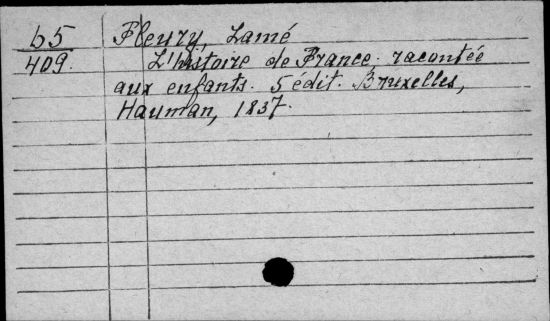 65 Fleury, Lamé
409. L'histoire de France, racontée
aux enfants. 5 édit. Bruxelles,
Hauman, 1837.